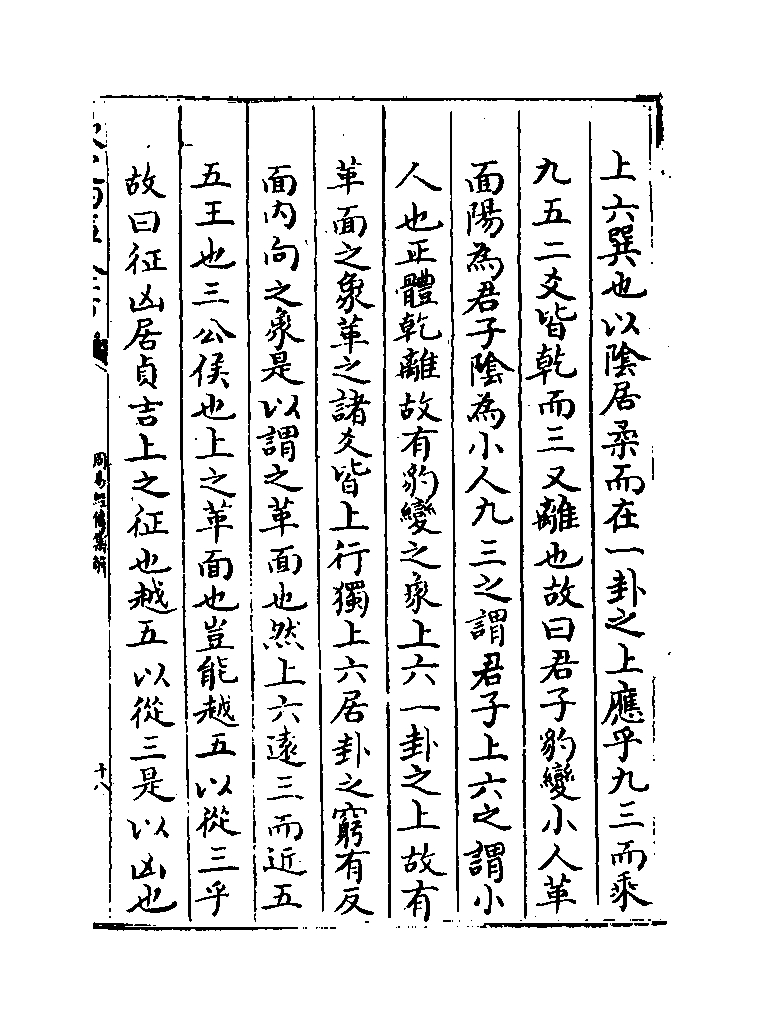 上六巽也以陰居柔而在一卦之上應乎九三而乘
九五二爻皆乾而三又離也故曰君子豹變小人革
面陽為君子陰為小人九三之謂君子上六之謂小
人也正體乾離故有豹變之象上六一卦之上故有
革面之象革之諸爻皆上行獨上六居卦之窮有反
面内向之象是以謂之革面也然上六遠三而近五
五王也三公侯也上之革面也豈能越五以從三乎
故曰征凶居貞吉上之征也越五以從三是以凶也
周易經傳集解
十八